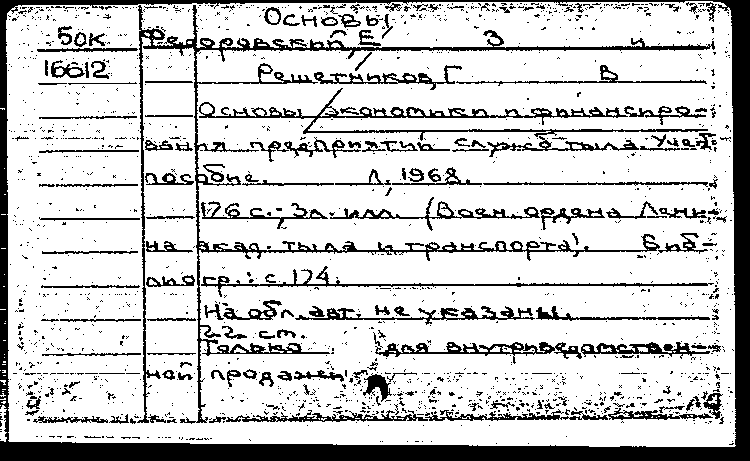 Основы
50к Федоровский, Е З и
16612 Решетников, Г В
Основы экономики и финансиро-
вания предприятий служб тыла. Учеб.
пособие. Л., 1968.
176 с.; 3л. илл. (Воен. ордена Лени-
на акад. тыла и транспорта). Биб-
лиогр.: с. 174.
На обл. авт. не указаны.
22 см.
Только для внутриведомствен-
ной продажи.